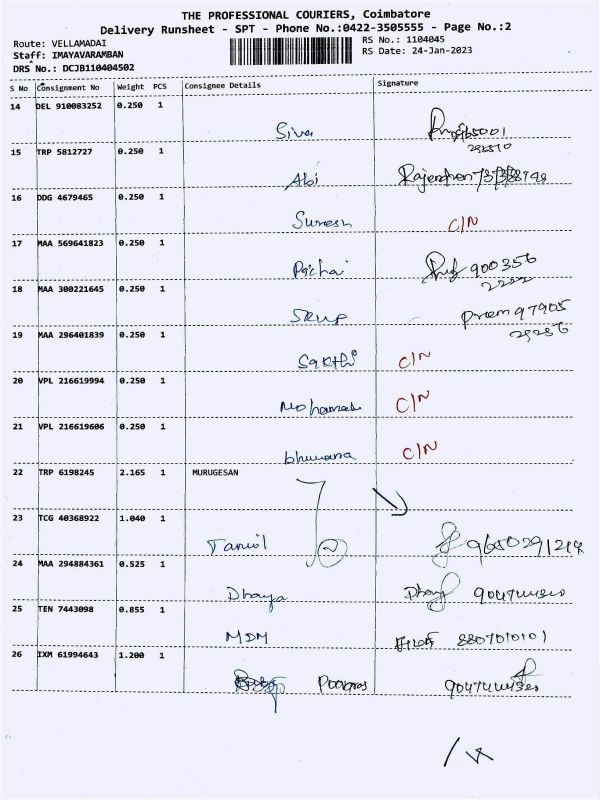 THE PROFESSIONAL COURIERS, Coimbatore
Delivery Runsheet - SPT - Phone No.:0422-3505555 - Page No.:2
Route: VELLAMADAI RS No.: 1104045
Staff: IMAYAVARAMBAN RS Date: 24-Jan-2023
DRS No.: DCJB110404502
S No Consignment No Weight PCS Consignee Details Signature
14 DEL 910083252 0.250 1
Siva
15 TRP 5812727 0.250 1
Abi Rajendran
16 DDG 4679465 0.250 1
Suresh C/N
17 MAA 569641823 0.250 1
Pachai 900356
2222
18 MAA 300221645 0.250 1
Prem 97905
29286
19 MAA 296401839 0.250 1
Sakthi C/N
20 VPL 216619994 0.250 1
Mohamed C/N
21 VPL 216619606 0.250 1
bhuvana C/N
22 TRP 6198245 2.165 1 MURUGESAN
23 TCG 40368922 1.040 1
Tamil
24 MAA 294884361 0.525 1
Dhaya
25 TEN 7443098 0.855 1
MDM 8807010101
26 IXM 61994643 1.200 1